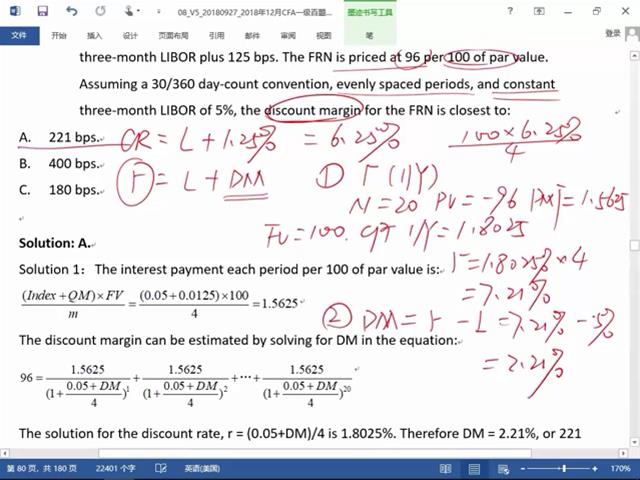 08_V5_20180927_2018年12月CFA一级百题
墨迹书写工具
文件
开始
插入
页面布局
引用
邮件
审阅
视图
笔
登录
three-month LIBOR plus 125 bps. The FRN is priced at 96 per 100 of par value.
Assuming a 30/360 day-count convention, evenly spaced periods, and constant
three-month LIBOR of 5%, the discount margin for the FRN is closest to:
A. 221 bps. CR = L + 1.25% = 6.25% 100 × 6.25% / 4
B. 400 bps. r = L + DM ① r (I/Y)
C. 180 bps. N = 20 PV = -96 PMT = 1.5625
FV = 100. CPT I/Y = 1.8025
Solution: A.
r = 1.8025% × 4
Solution 1：The interest payment each period per 100 of par value is:
= 7.21%
(Index + QM) × FV / m = (0.05 + 0.0125) × 100 / 4 = 1.5625
② DM = r - L = 7.21% - 5%
The discount margin can be estimated by solving for DM in the equation:
= 2.21%
96 = 1.5625 / (1 + (0.05 + DM) / 4)^1 + 1.5625 / (1 + (0.05 + DM) / 4)^2 + ⋯ + 1.5625 / (1 + (0.05 + DM) / 4)^20
The solution for the discount rate, r = (0.05+DM)/4 is 1.8025%. Therefore DM = 2.21%, or 221
第 80 页，共 180 页
22401 个字
英语(美国)
170%